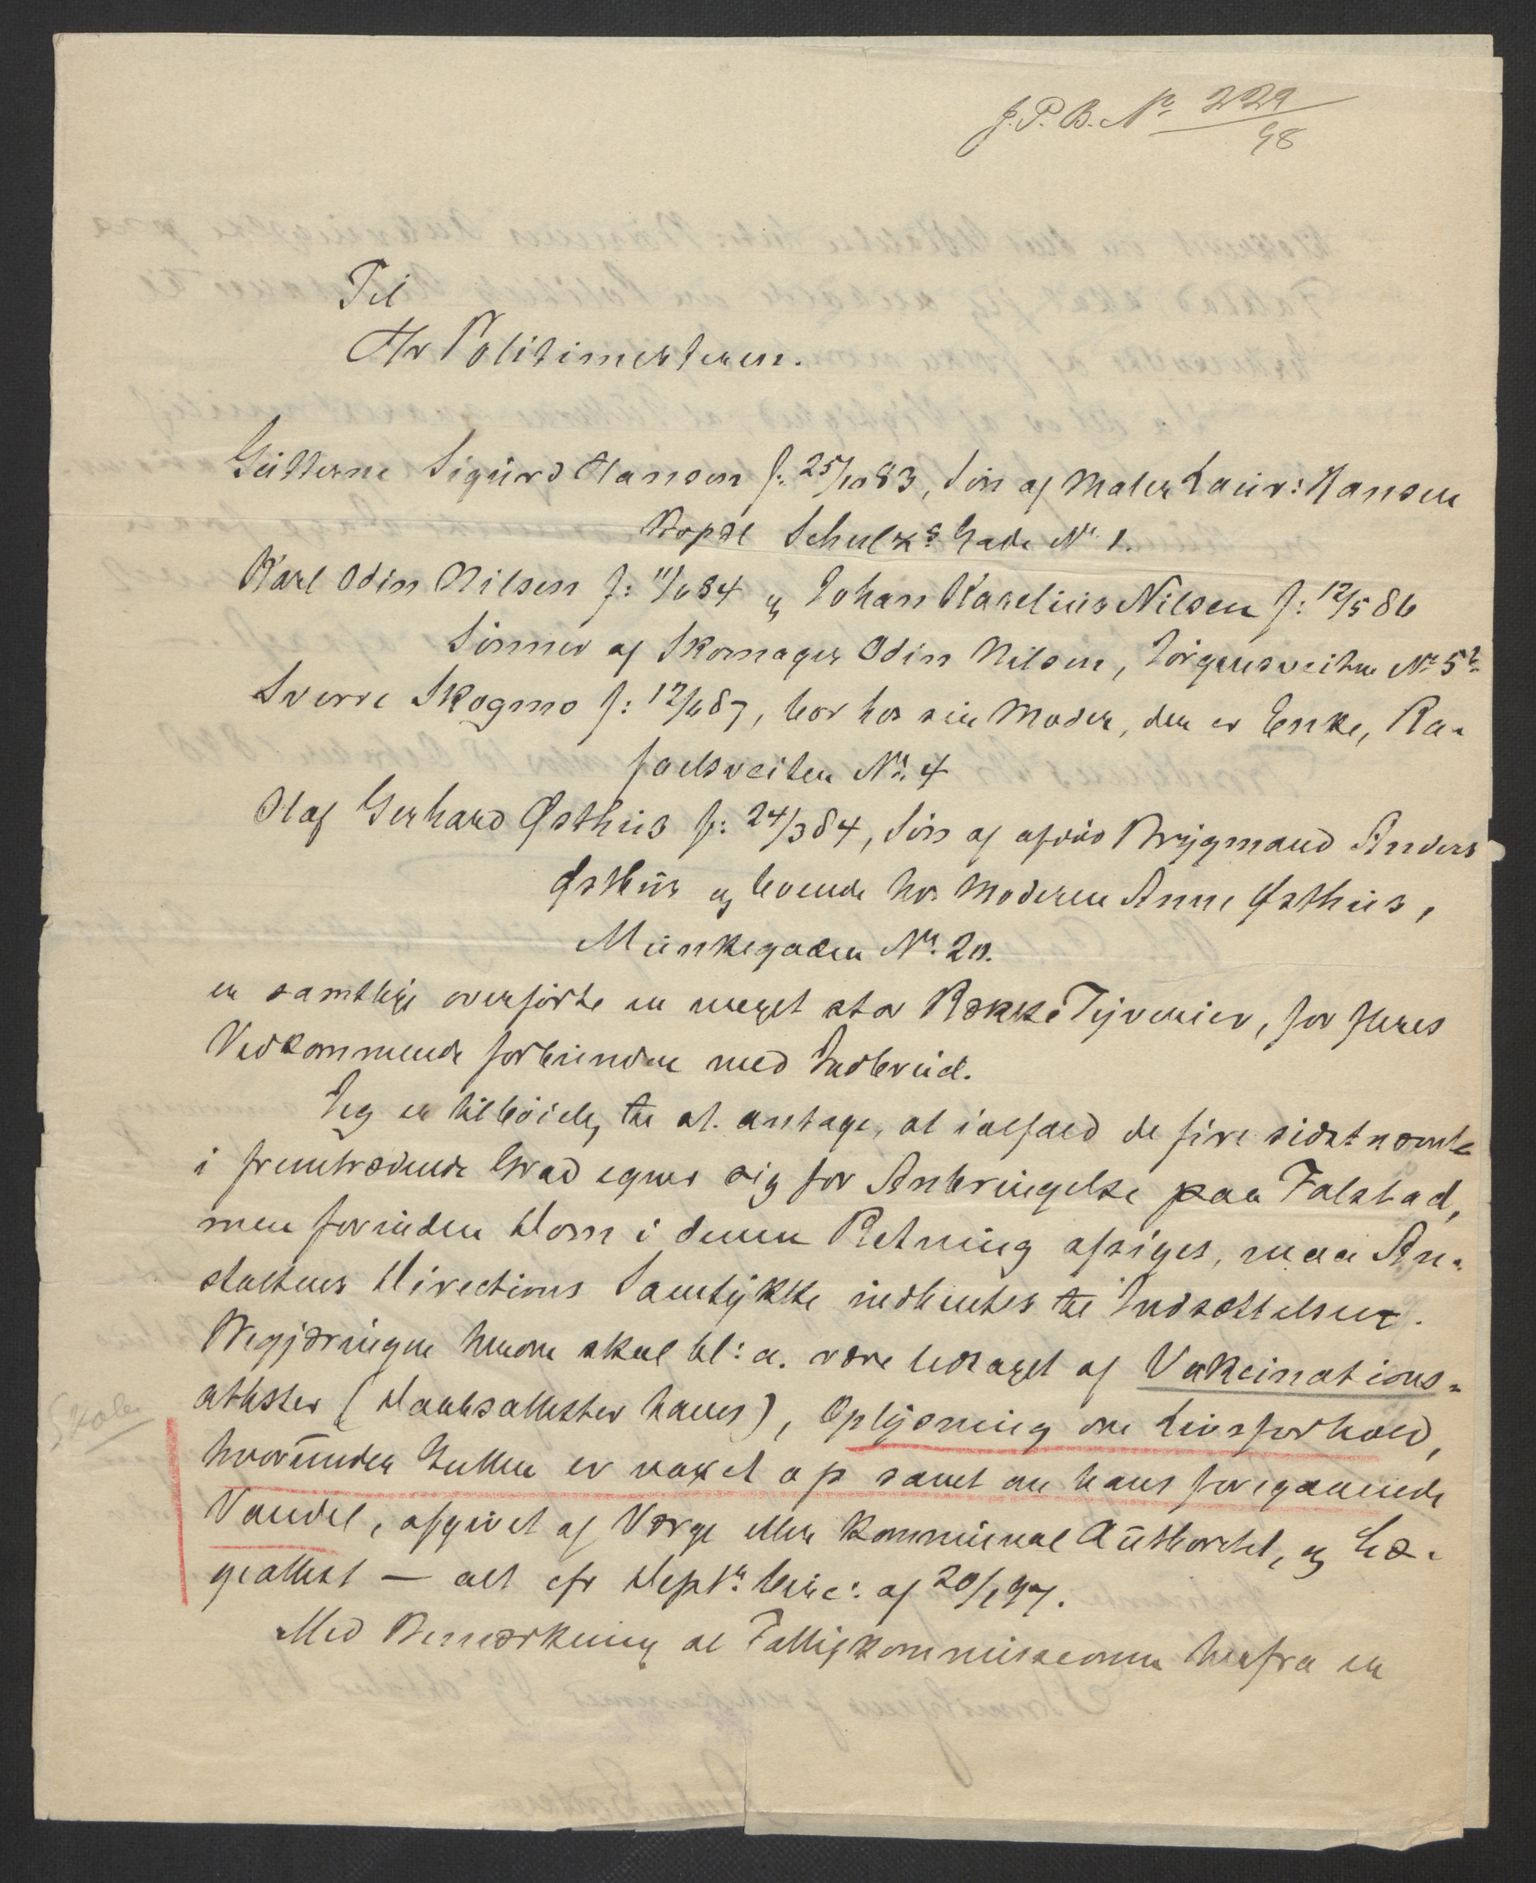 J.P.B. No 229/98
Til
Hr Politimesteren.
Gutterne Sigurd Hansen f: 25/10 83, Søn af Maler Laur: Hansen
Bopæl Schulzs Gade No 1.
Karl Odin Nilsen f: 11/6 84 og Johan Karelius Nilsen f: 12/5 86
Sønner af Skomager Odin Nilsen, Jørgensveiten No 5b
Sverre Skogmo f: 12/6 87, bor hos sin Moder, der er Enke, Ra-
faelsveiten No. 4
Olaf Gerhard Østhus f: 24/3 84, Søn af afdød Brygmand Anders
Østhus og boende hos Moderen Anne Østhus,
Munkegaden No. 20.
er samtlige overførte en meget stor Række Tyverier, for fleres
Vedkommende forbunden med Indbrud.
Jeg er tilbøielig til at antage, at ialfald de fire sidstnævnte
i fremtrædende Grad egner sig for Anbringelse paa Falstad,
men forinden Dom i denne Retning afsiges, maa An-
staltens Directions Samtykke indhentes til Indsættelsen.
Begjæringen herom skal bl: a. være ledsaget af Vakcinations-
attester (Daabsattester haves), Oplysning om Livsforhold,
Skole
hvorunder Gutten er voxet op samt om hans foregaaende
Vandel, afgivet af Værge eller Kommunal Authoritet, og Læ-
geattest — alt cfr Deptr Circ: af 20/1 97.
Med Bemærkning at Fattigkommissionen herfra er